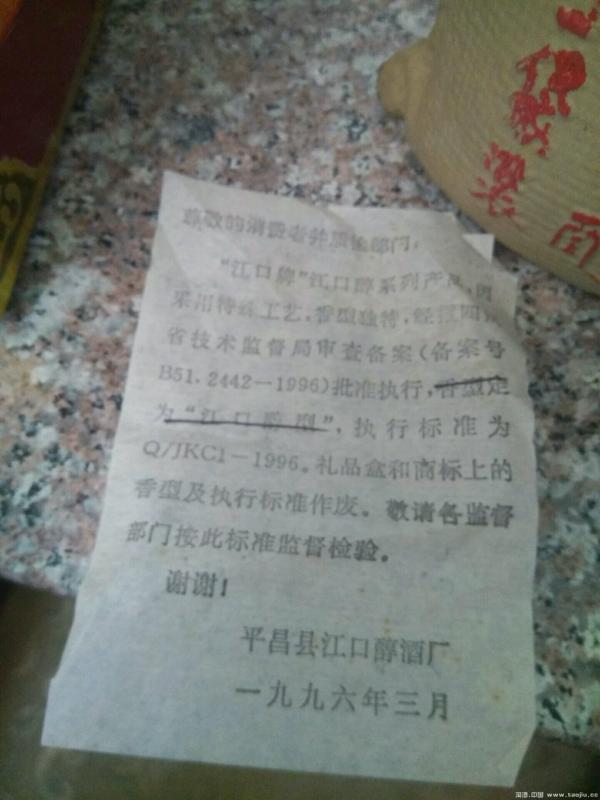 尊敬的消费者并质检部门：
“江口牌”江口醇系列产品，因
采用特殊工艺，香型独特，经报四川
省技术监督局审查备案（备案号
B51.2442－1996）批准执行，香型定
为“江口醇型”，执行标准为
Q/JKC1－1996。礼品盒和商标上的
香型及执行标准作废。敬请各监督
部门按此标准监督检验。
谢谢！
平昌县江口醇酒厂
一九九六年三月
中国 www.taojiu.cc